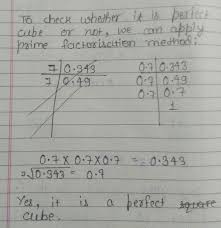 To check whether it is perfect
cube or not, we can apply
prime factorisation method:
7 | 0.343
7 | 0.49
0.7 | 0.343
0.7 | 0.49
0.7 | 0.7
1
0.7 × 0.7 × 0.7 = 0.343
∛0.343 = 0.7
Yes, it is a perfect square
cube.